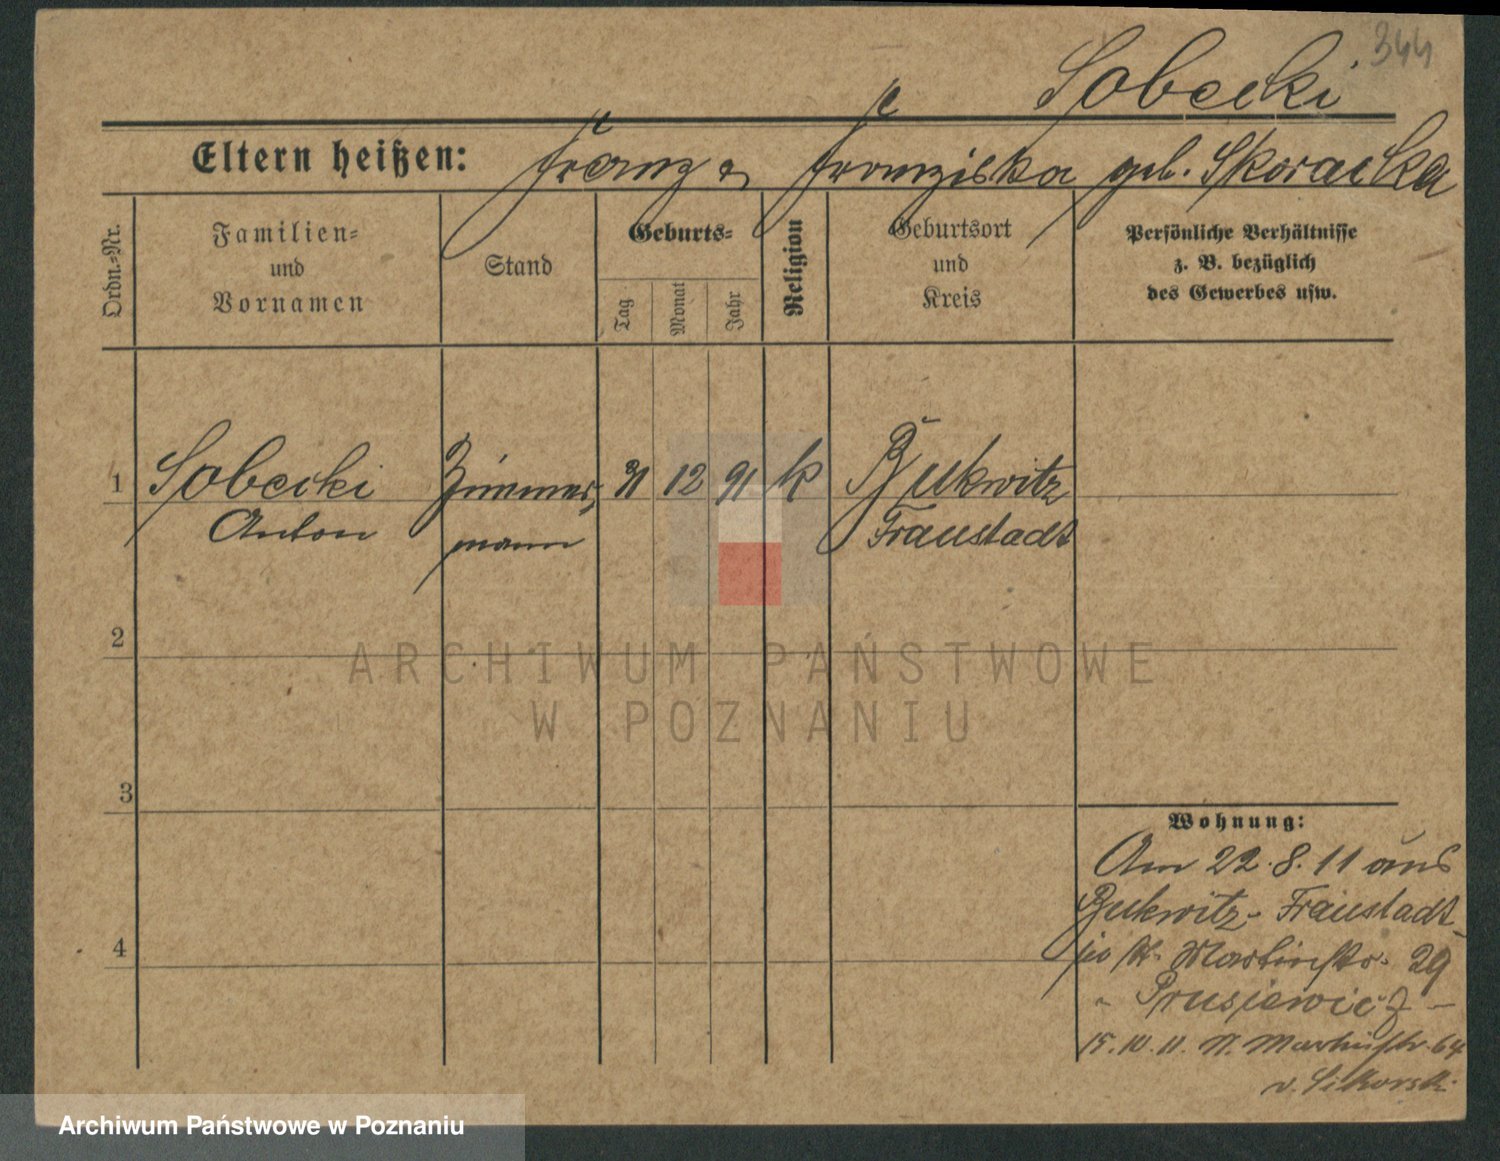 344
Sobecki
Eltern heißen: Franz u Franziska geb. Skoracka
Ordn.=Nr.
Familien=
und
Vornamen
Stand
Geburts=
Tag
Monat
Jahr
Religion
Geburtsort
und
Kreis
Persönliche Verhältnisse
z. B. bezüglich
des Gewerbes usw.
1 Sobecki Zimmer, 31 12 91 k Bukwitz
Anton mann Fraustadt
2
3
4
Wohnung:
Am 22.8.11 aus
Bukwitz- Fraustadt
St. Martinstr. 29
Prusiewicz -
15.10.11. St. Martinstr. 64
v. Sikorski
ARCHIWUM PAŃSTWOWE
W POZNANIU
Archiwum Państwowe w Poznaniu